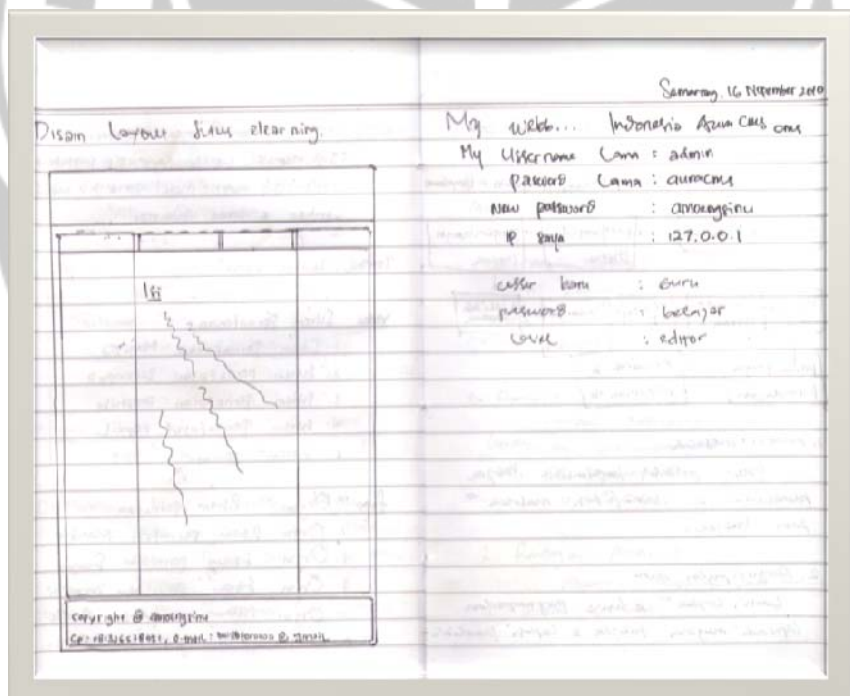 Disain Layout Situs elearning.
Isi
copyright @ amoengpinu
Cp:
, e-mail :
@ gmail
Semarang, 16 Nopember 2010
My Webb... Indonesia Aura CMS
My Username Lama : admin
Pasword Lama : auracms
New password : amoengpinu
IP saya : 127.0.0.1
usser baru : Guru
pasword : belajar
Level : editor